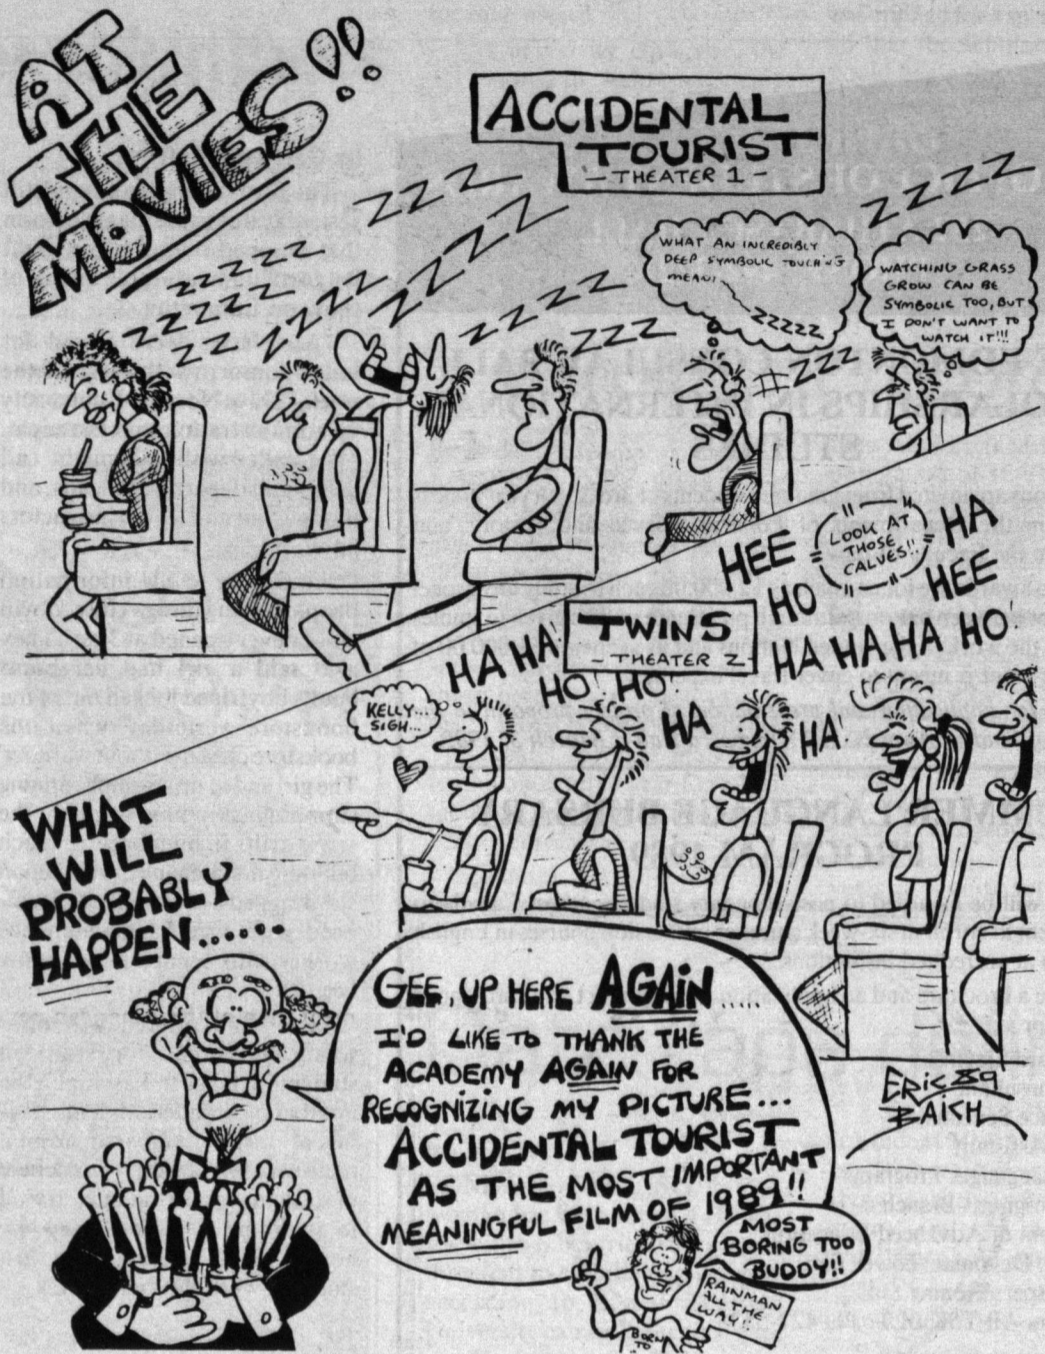 AT
THE
MOVIES!!
ACCIDENTAL
TOURIST
- THEATER 1 -
ZZZ
ZZZ
ZZZZZ
ZZZZZ
ZZZZ
ZZ ZZZZ
ZZZZ
ZZZZ
ZZZ
WHAT AN INCREDIBLY
DEEP SYMBOLIC TOUCHING
MEANI
ZZZZZ
WATCHING GRASS
GROW CAN BE
SYMBOLIC TOO, BUT
I DON'T WANT TO
WATCH IT!!!
ZZZ
HEE
HO
LOOK AT
THOSE
CALVES!!
HA
HEE
TWINS
- THEATER 2 -
HA HA!
HO! HO!
HA HA HA HO!
HA
HA!
KELLY...
SIGH...
WHAT
WILL
PROBABLY
HAPPEN......
GEE, UP HERE AGAIN....
I'D LIKE TO THANK THE
ACADEMY AGAIN FOR
RECOGNIZING MY PICTURE...
ACCIDENTAL TOURIST
AS THE MOST IMPORTANT
MEANINGFUL FILM OF 1989!!
ERIC 89
BAICH
MOST
BORING TOO
BUDDY!!
RAINMAN
ALL THE
WAY!!
BORN
TO